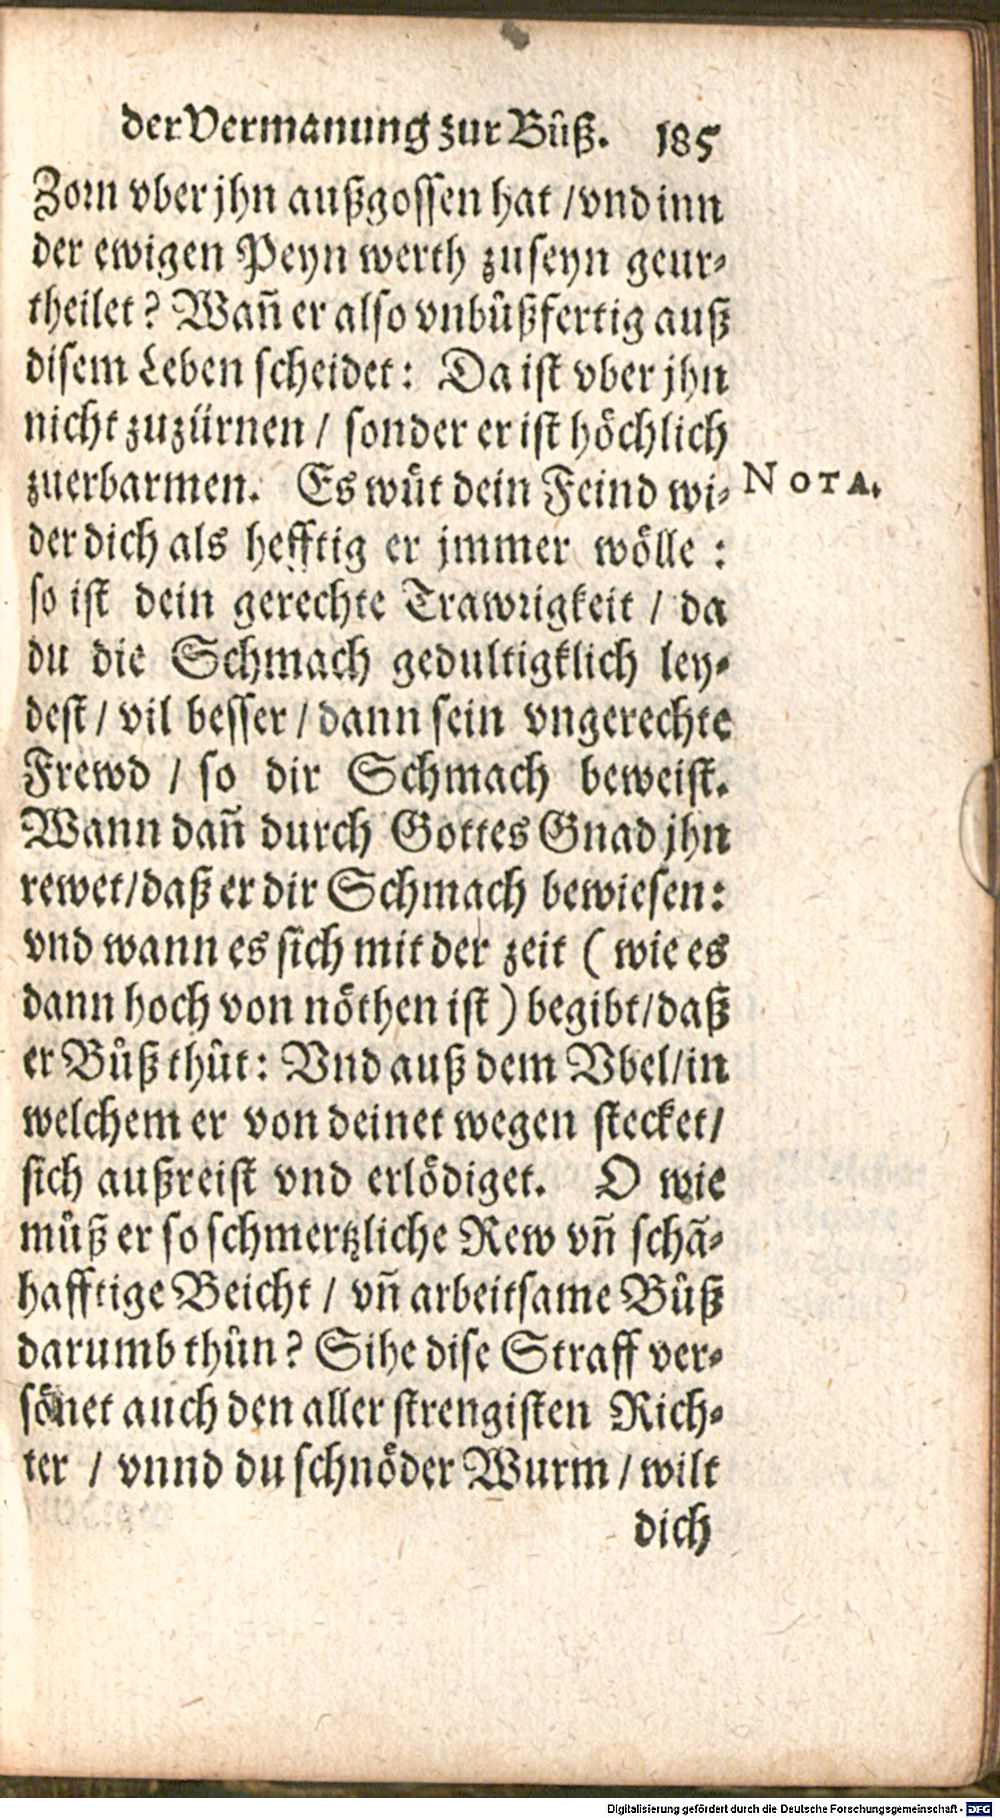 der Vermanung zur Bůß. 185
Zorn vber jhn außgossen hat / vnd inn
der ewigen Peyn werth zuseyn geur-
theilet? Wañ er also vnbůßfertig auß
disem Leben scheidet: Da ist vber jhn
nicht zuzürnen / sonder er ist höchlich
zuerbarmen. Es wůt dein Feind wi- NOTA.
der dich als hefftig er jmmer wölle :
so ist dein gerechte Trawrigkeit / da
du die Schmach gedultigklich ley-
dest / vil besser / dann sein vngerechte
Frewd / so dir Schmach beweist.
Wann dañ durch Gottes Gnad jhn
rewet/daß er dir Schmach bewiesen:
vnd wann es sich mit der zeit ( wie es
dann hoch von nöthen ist ) begibt/daß
er Bůß thůt: Vnd auß dem Vbel/in
welchem er von deinet wegen stecket/
sich außreist vnd erlödiget. O wie
můß er so schmertzliche Rew vñ schã-
hafftige Beicht / vñ arbeitsame Bůß
darumb thůn? Sihe dise Straff ver-
sönet auch den aller strengisten Rich-
ter / vnnd du schnöder Wurm / wilt
dich
Digitalisierung gefördert durch die Deutsche Forschungsgemeinschaft - DFG